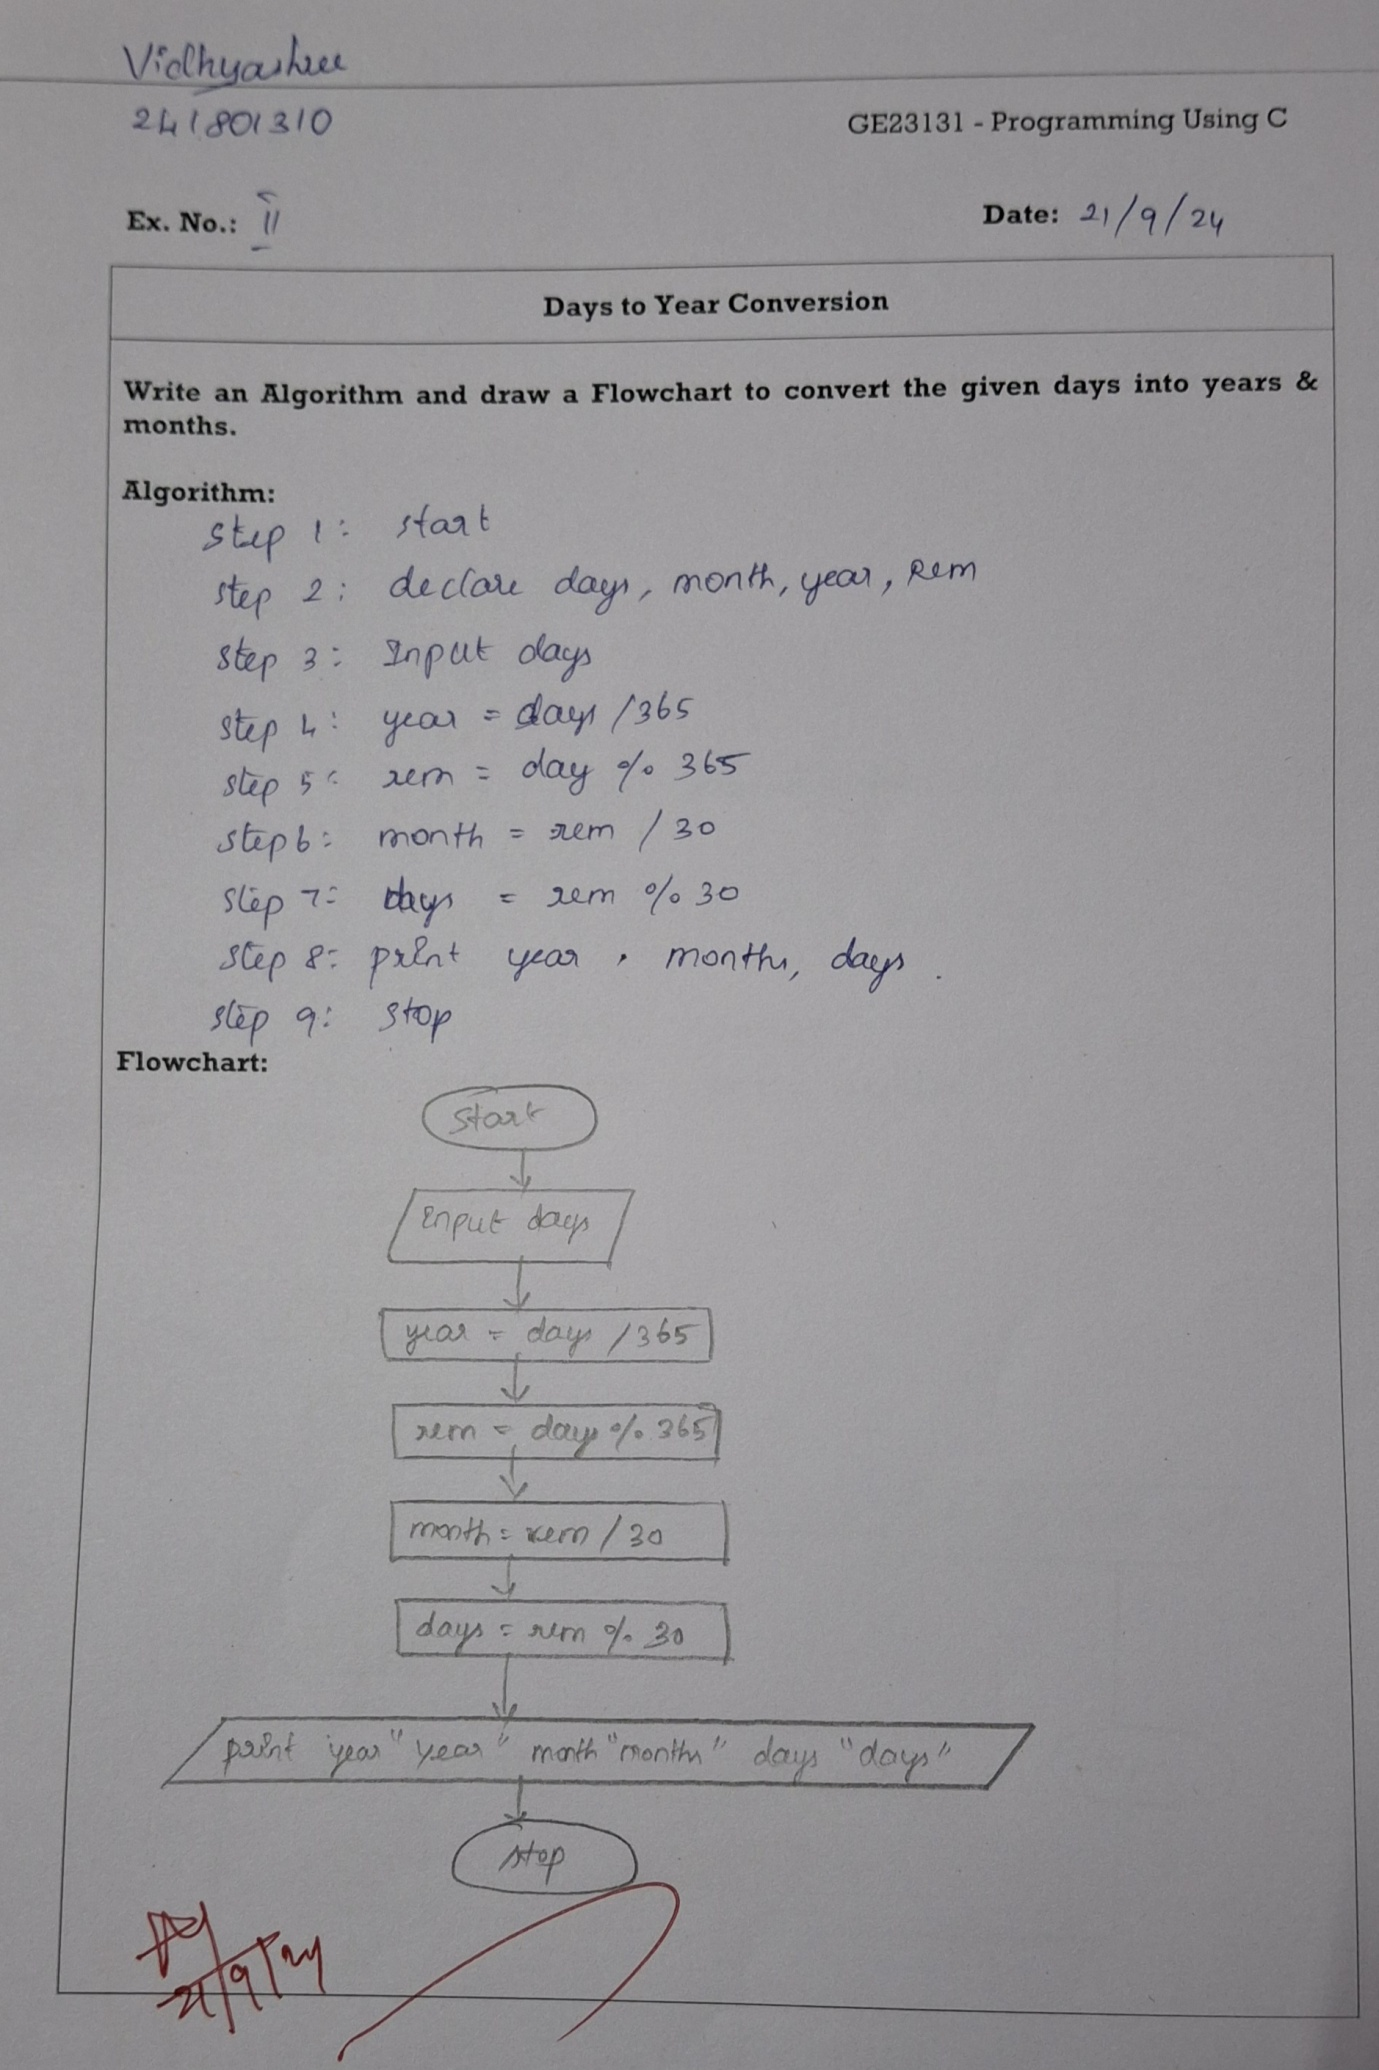 Vidhyashree
241801310
GE23131 - Programming Using C
Ex. No.: II
Date: 21/9/24
Days to Year Conversion
Write an Algorithm and draw a Flowchart to convert the given days into years &
months.
Algorithm:
Step 1: start
step 2: declare days, month, year, Rem
step 3: Input days
step 4: year = days / 365
step 5: rem = day % 365
step 6: month = rem / 30
step 7: days = rem % 30
step 8: print year, months, days.
step 9: stop
Flowchart:
Start
Input days
year = days / 365
rem = days % 365
month = rem / 30
days = rem % 30
print year "year" month "months" days "days"
stop
21/9/24